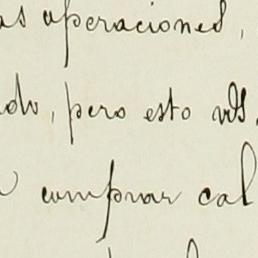 as operaciones,
do, pero esto vds.
comprar cal